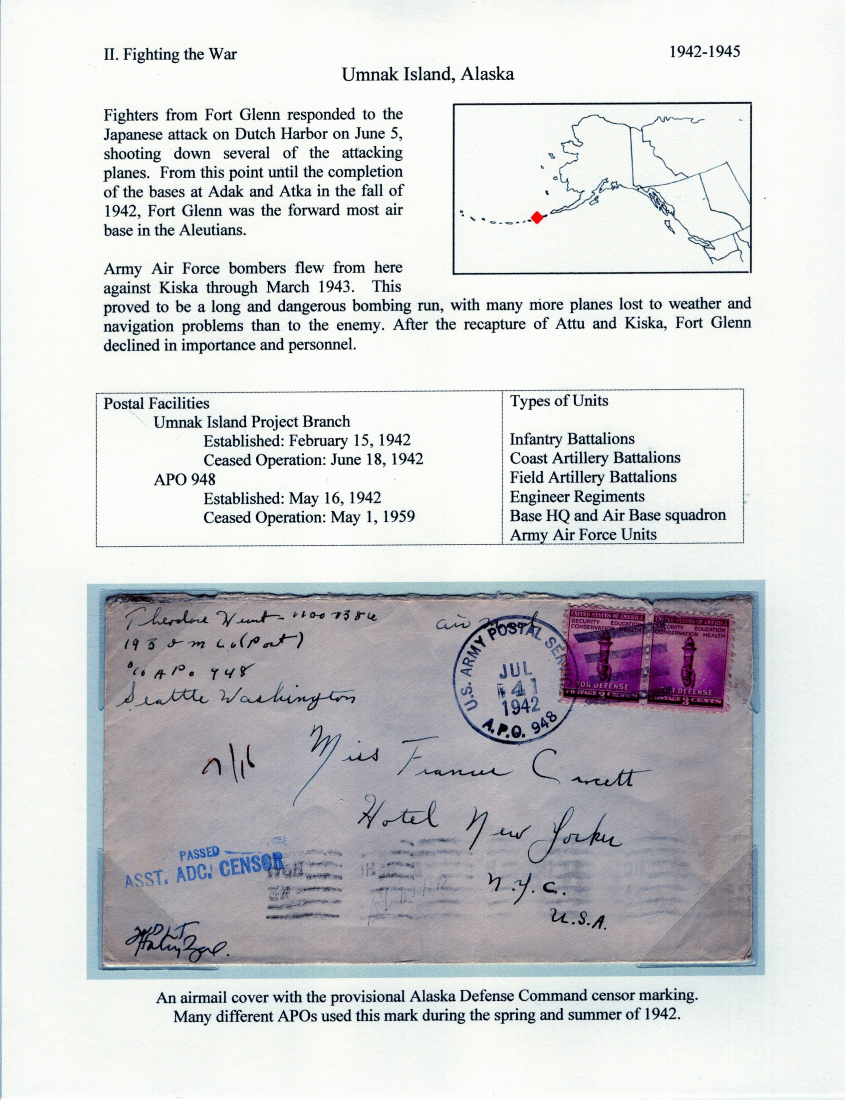 II. Fighting the War
1942-1945
Umnak Island, Alaska
Fighters from Fort Glenn responded to the
Japanese attack on Dutch Harbor on June 5,
shooting down several of the attacking
planes. From this point until the completion
of the bases at Adak and Atka in the fall of
1942, Fort Glenn was the forward most air
base in the Aleutians.
Army Air Force bombers flew from here
against Kiska through March 1943. This
proved to be a long and dangerous bombing run, with many more planes lost to weather and
navigation problems than to the enemy. After the recapture of Attu and Kiska, Fort Glenn
declined in importance and personnel.
Postal Facilities
Umnak Island Project Branch
Established: February 15, 1942
Ceased Operation: June 18, 1942
APO 948
Established: May 16, 1942
Ceased Operation: May 1, 1959
Types of Units
Infantry Battalions
Coast Artillery Battalions
Field Artillery Battalions
Engineer Regiments
Base HQ and Air Base squadron
Army Air Force Units
Theodore
193
(Port)
c/o A.P.O 948
Seattle Washington
air
U.S. ARMY POSTAL SER
JUL
1942
A.P.O. 948
UNITED STATES OF AMERICA
SECURITY EDUCATION
CONSERVATION HEALTH
FOR DEFENSE
POSTAGE 3 CENTS
UNITED STATES OF AMERICA
SECURITY EDUCATION
CONSERVATION HEALTH
FOR DEFENSE
POSTAGE 3 CENTS
7/16
Miss
Hotel New Yorker
N.Y.C.
U.S.A.
PASSED
ASST. ADC. CENSOR
An airmail cover with the provisional Alaska Defense Command censor marking.
Many different APOs used this mark during the spring and summer of 1942.